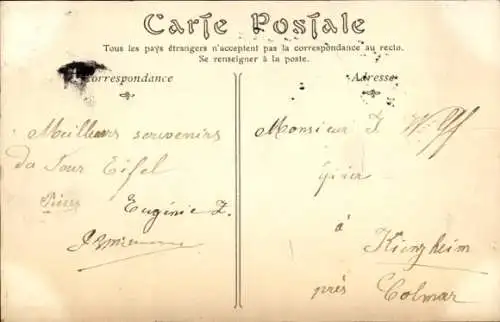 Carte Postale
Tous les pays étrangers n'acceptent pas la correspondance au recto.
Se renseigner à la poste.
Correspondance
Adresse
Meilleurs souvenirs
da Tour Eifel
Eugénie Z.
Monsieur J. Wolff
à
Kienzheim
près Colmar